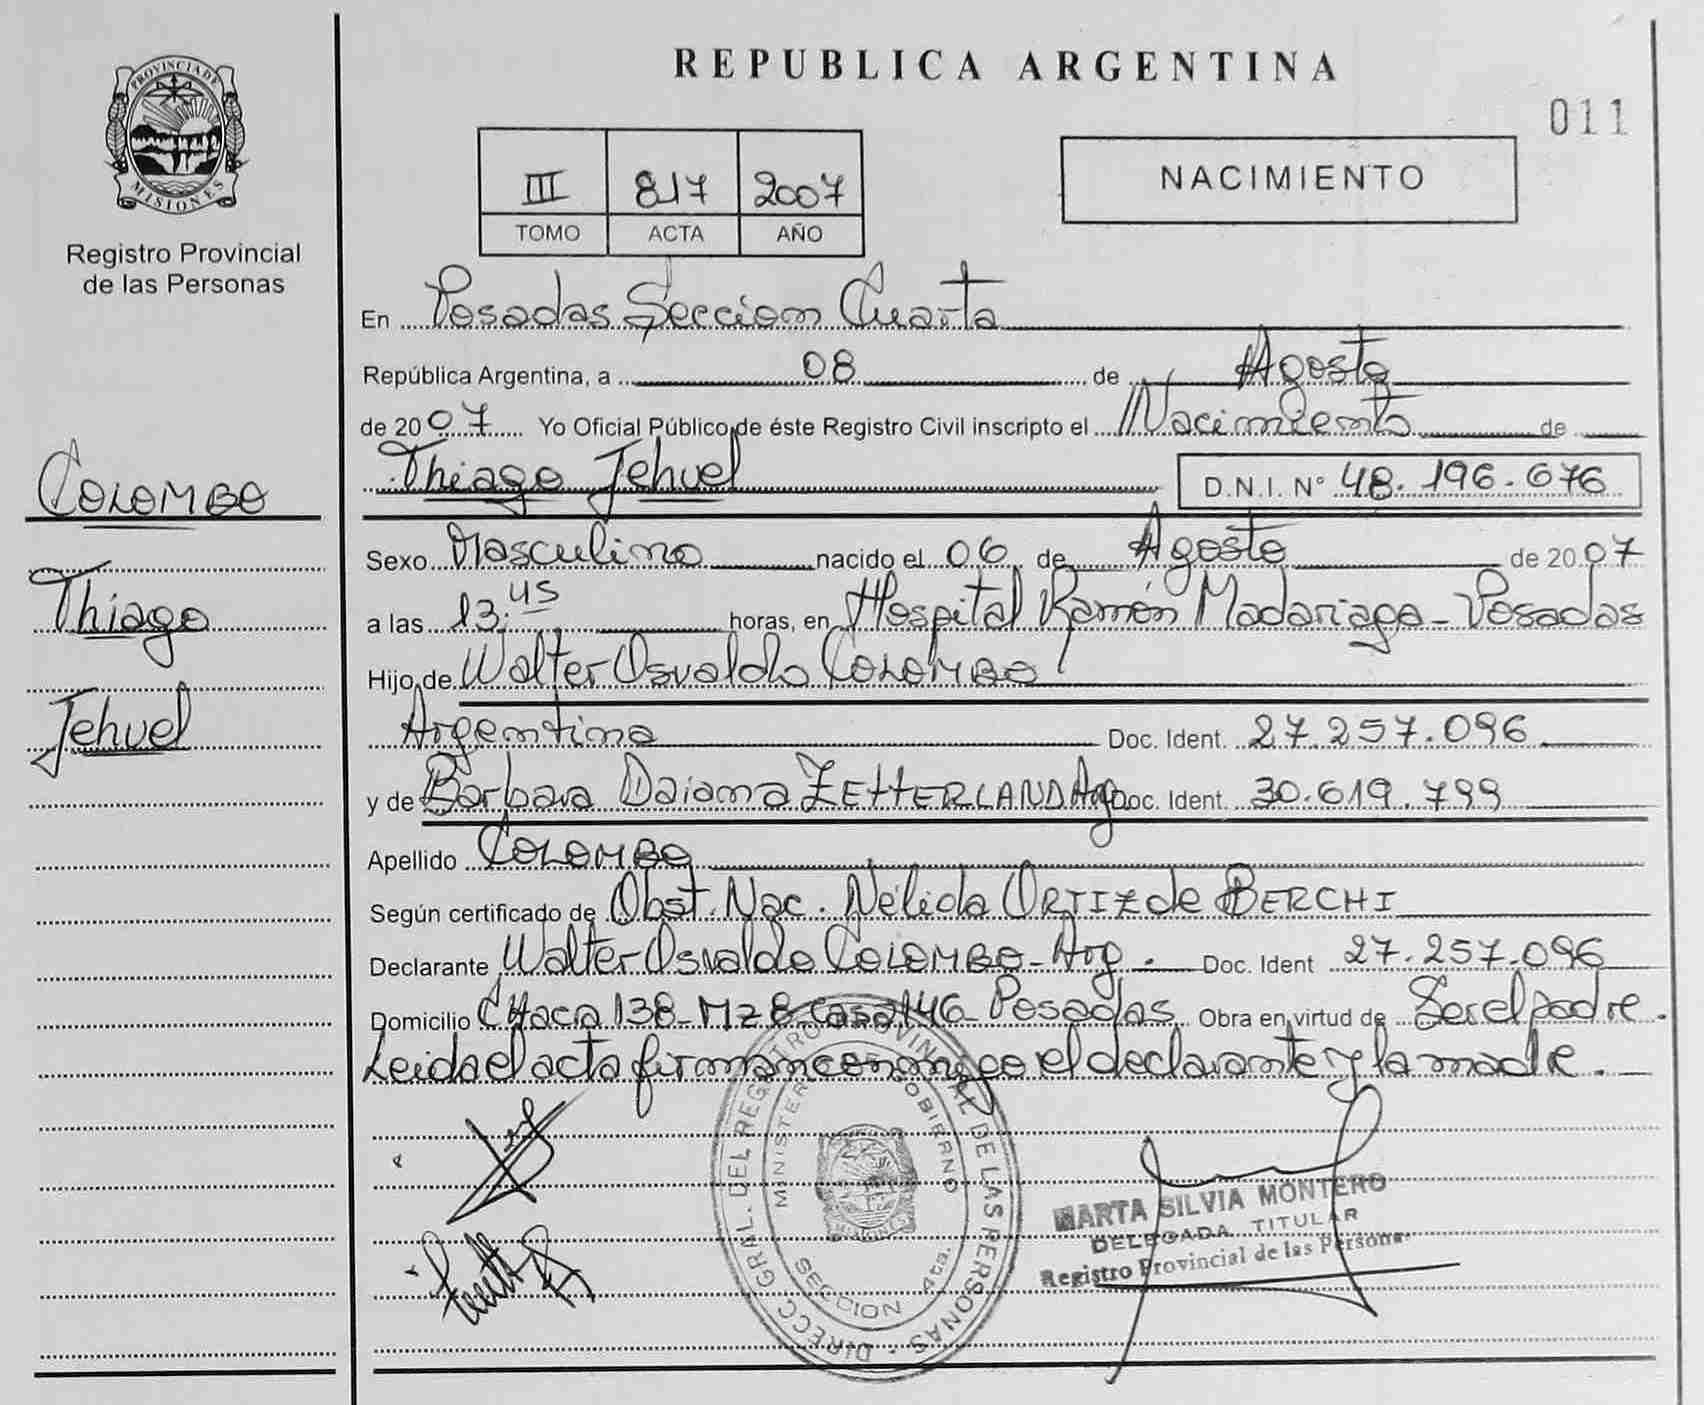 PROVINCIA DE
MISIONES
Registro Provincial
de las Personas
COLOMBO
Thiago
Jehuel
REPUBLICA ARGENTINA
011
III 817 2007
TOMO ACTA AÑO
NACIMIENTO
En Posadas Seccion Cuarta
República Argentina, a 08 de Agosto
de 2007 Yo Oficial Público de éste Registro Civil inscripto el Nacimiento de
Thiago Jehuel D.N.I. N° 48.196.676
Sexo Masculino nacido el 06 de Agosto de 2007
a las 13:45 horas, en Hospital Ramón Madariaga - Posadas
Hijo de Walter Osvaldo COLOMBO
Argentina Doc. Ident. 27.257.096
y de Bárbara Daiana ZETTERLAND Arg Doc. Ident. 30.619.799
Apellido COLOMBO
Según certificado de Obst. Nac. Nélida ORTIZ de BERCHI
Declarante Walter Osvaldo COLOMBO - Arg. Doc. Ident 27.257.096
Domicilio CHaca 138 - Mz 8 - Casa 146 - Posadas Obra en virtud de Ser el padre.
Leida el acta firman conmigo el declarante y la madre.
DIRECC. GRAL. DEL REGISTRO PROVINCIAL DE LAS PERSONAS
MINISTERIO DE GOBIERNO
SECCION 4ta.
MARTA SILVIA MONTERO
DELEGADA TITULAR
Registro Provincial de las Persona